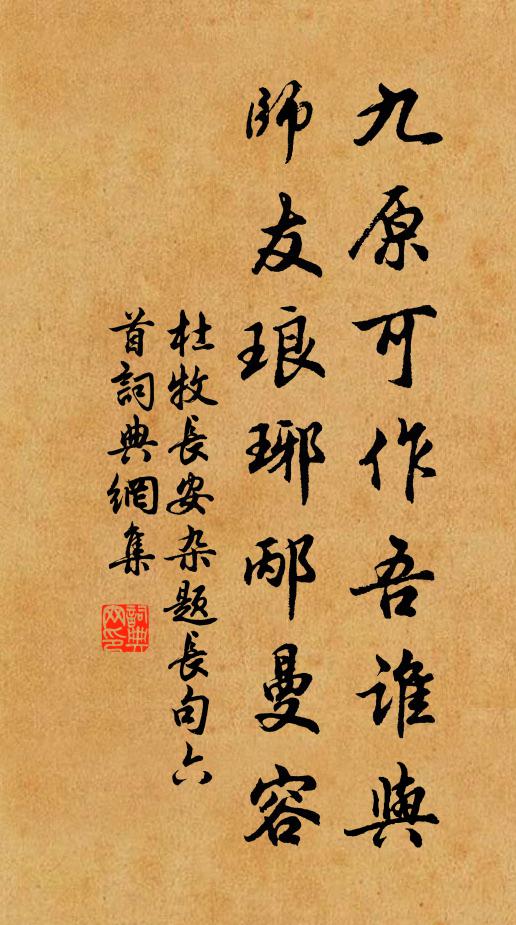 九原可作吾誰與
師友琅琊邴曼容
杜牧長安杂題長句六
首詞典網集
詞典网印